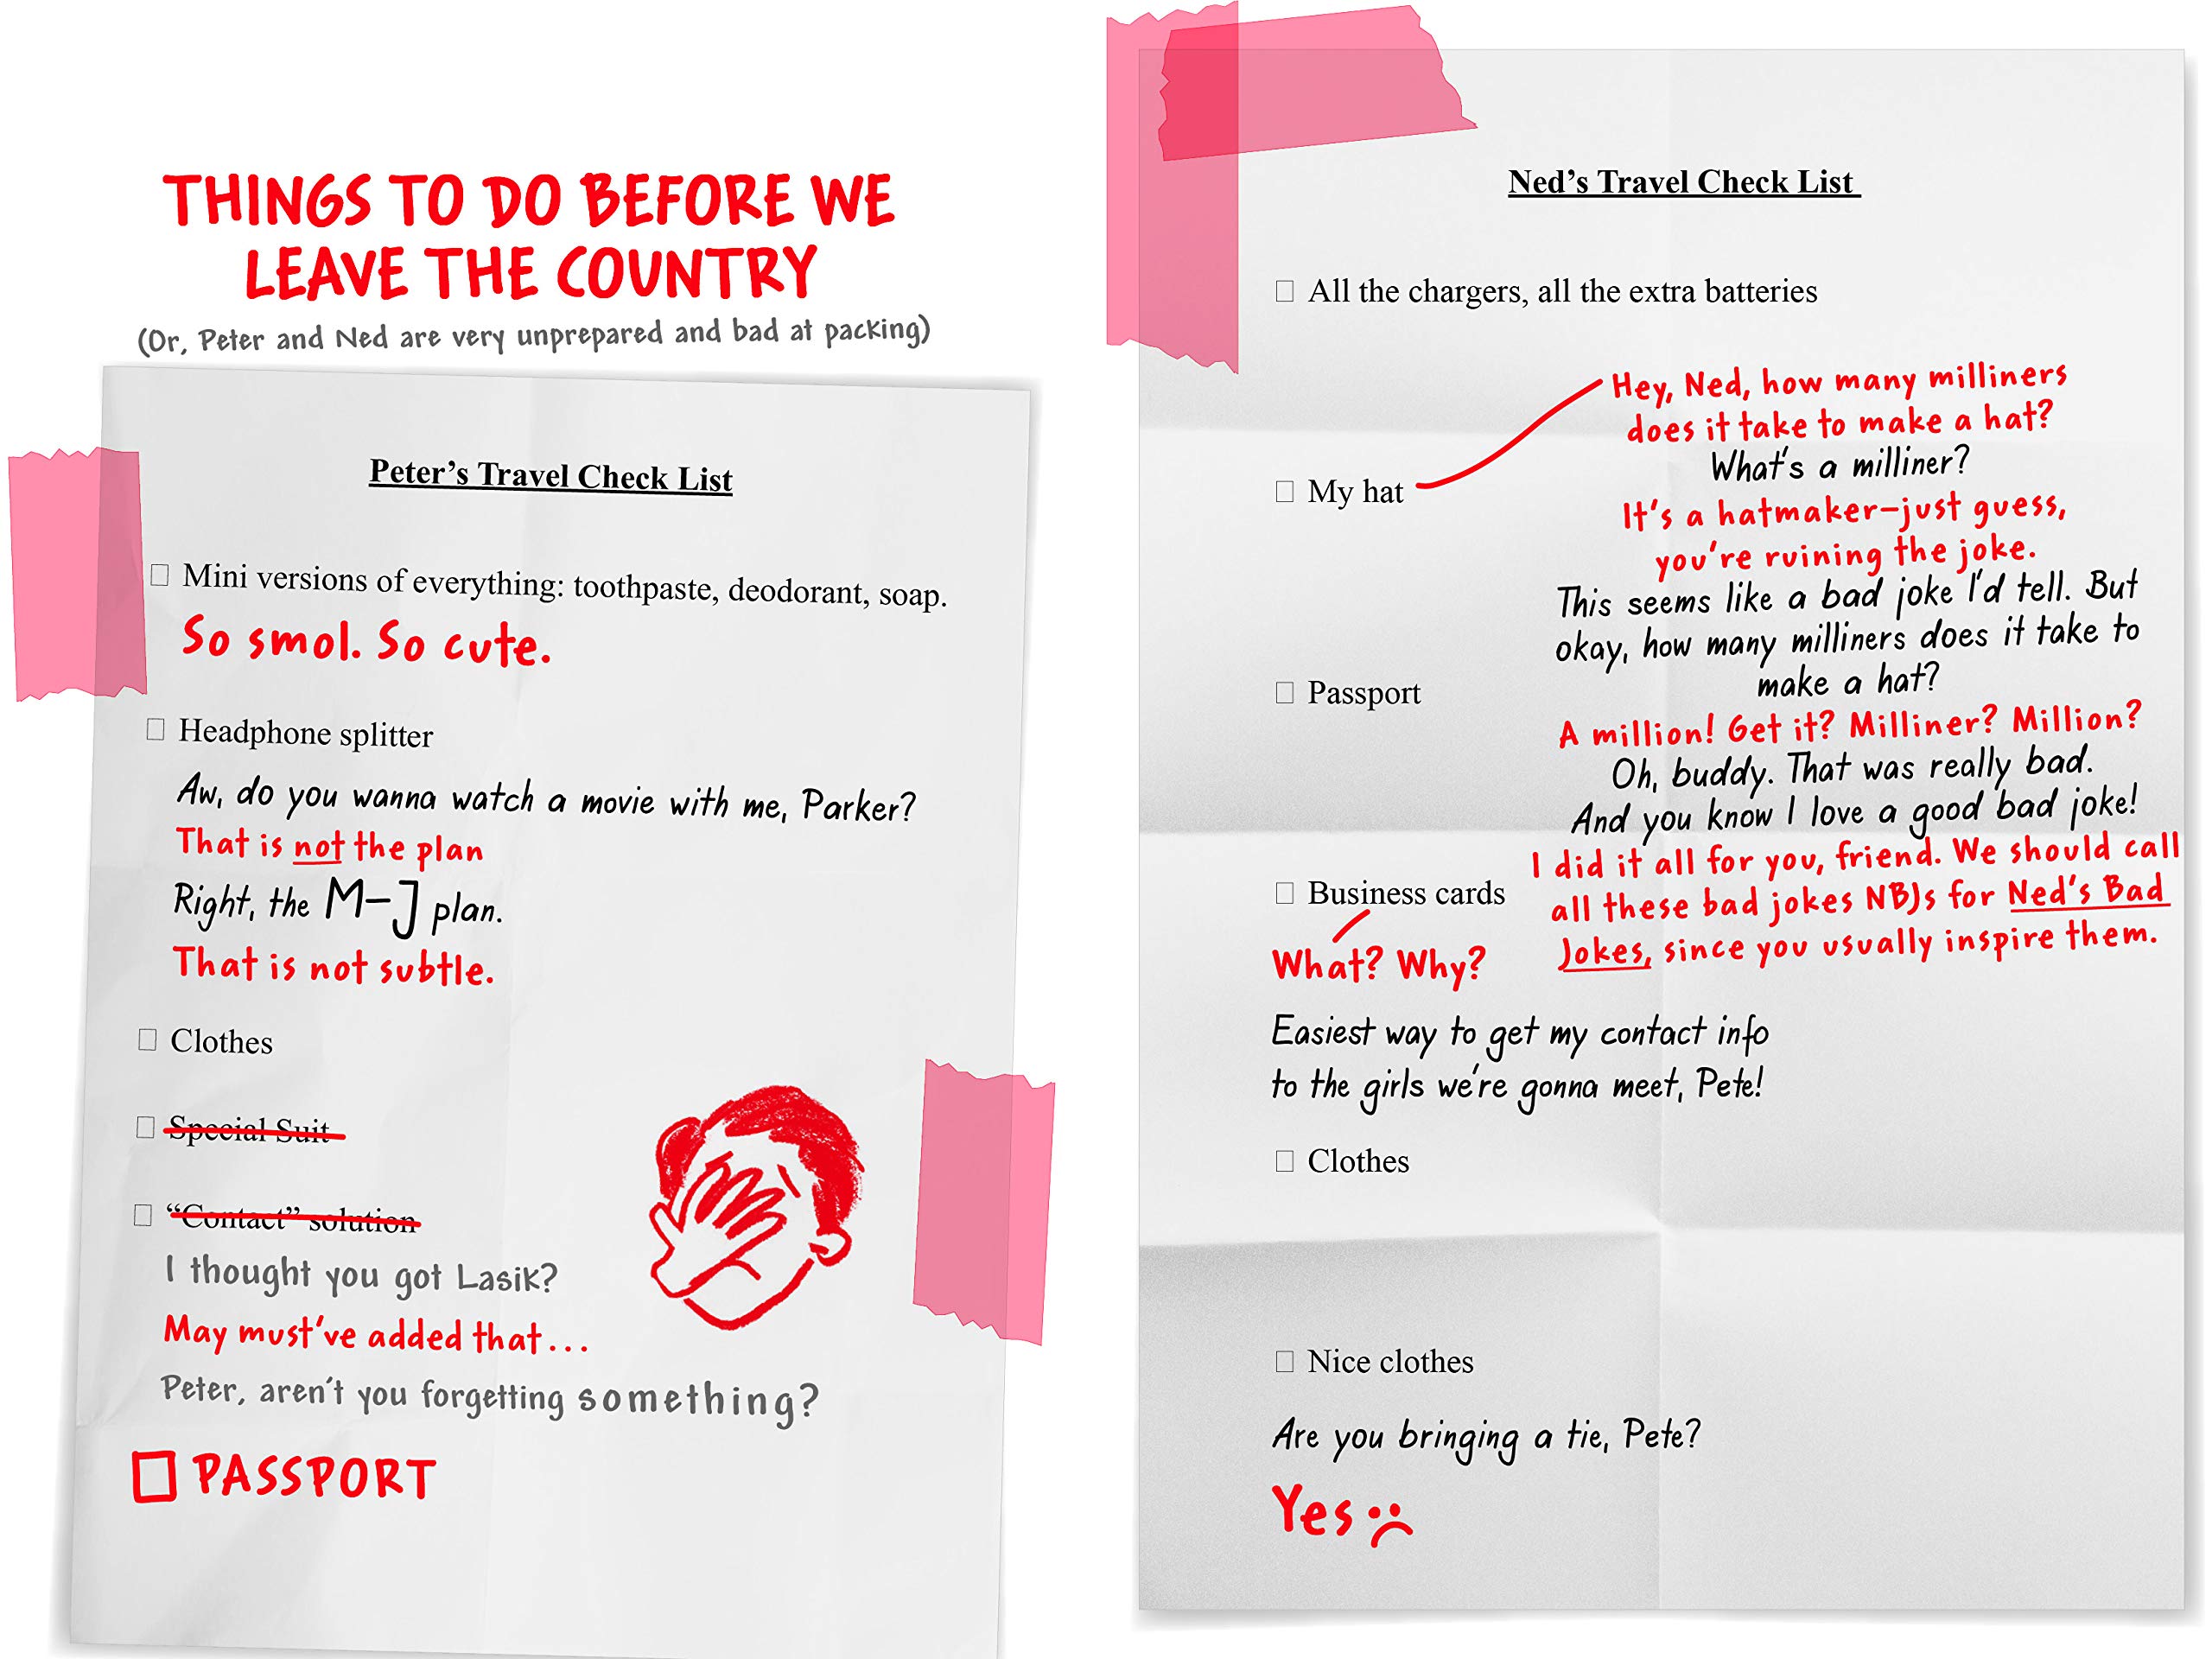 THINGS TO DO BEFORE WE
LEAVE THE COUNTRY
(Or, Peter and Ned are very unprepared and bad at packing)
Peter's Travel Check List
☐ Mini versions of everything: toothpaste, deodorant, soap.
So smol. So cute.
☐ Headphone splitter
Aw, do you wanna watch a movie with me, Parker?
That is not the plan
Right, the M-J plan.
That is not subtle.
☐ Clothes
☐ Special Suit
☐ "Contact" solution
I thought you got Lasik?
May must've added that...
Peter, aren't you forgetting something?
☐ PASSPORT
Ned's Travel Check List
☐ All the chargers, all the extra batteries
☐ My hat
Hey, Ned, how many milliners
does it take to make a hat?
What's a milliner?
It's a hatmaker—just guess,
you're ruining the joke.
This seems like a bad joke I'd tell. But
okay, how many milliners does it take to
make a hat?
A million! Get it? Milliner? Million?
Oh, buddy. That was really bad.
And you know I love a good bad joke!
I did it all for you, friend. We should call
all these bad jokes NBJs for Ned's Bad
Jokes, since you usually inspire them.
☐ Passport
☐ Business cards
What? Why?
Easiest way to get my contact info
to the girls we're gonna meet, Pete!
☐ Clothes
☐ Nice clothes
Are you bringing a tie, Pete?
Yes :(